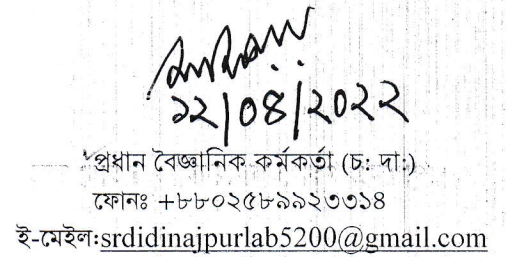 ১২/০৪/২০২২
প্রধান বৈজ্ঞানিক কর্মকর্তা (চ: দা:)
ফোনঃ +৮৮০২৫৮৯৯২৩৩১৪
ই-মেইল:srdidinajpurlab5200@gmail.com